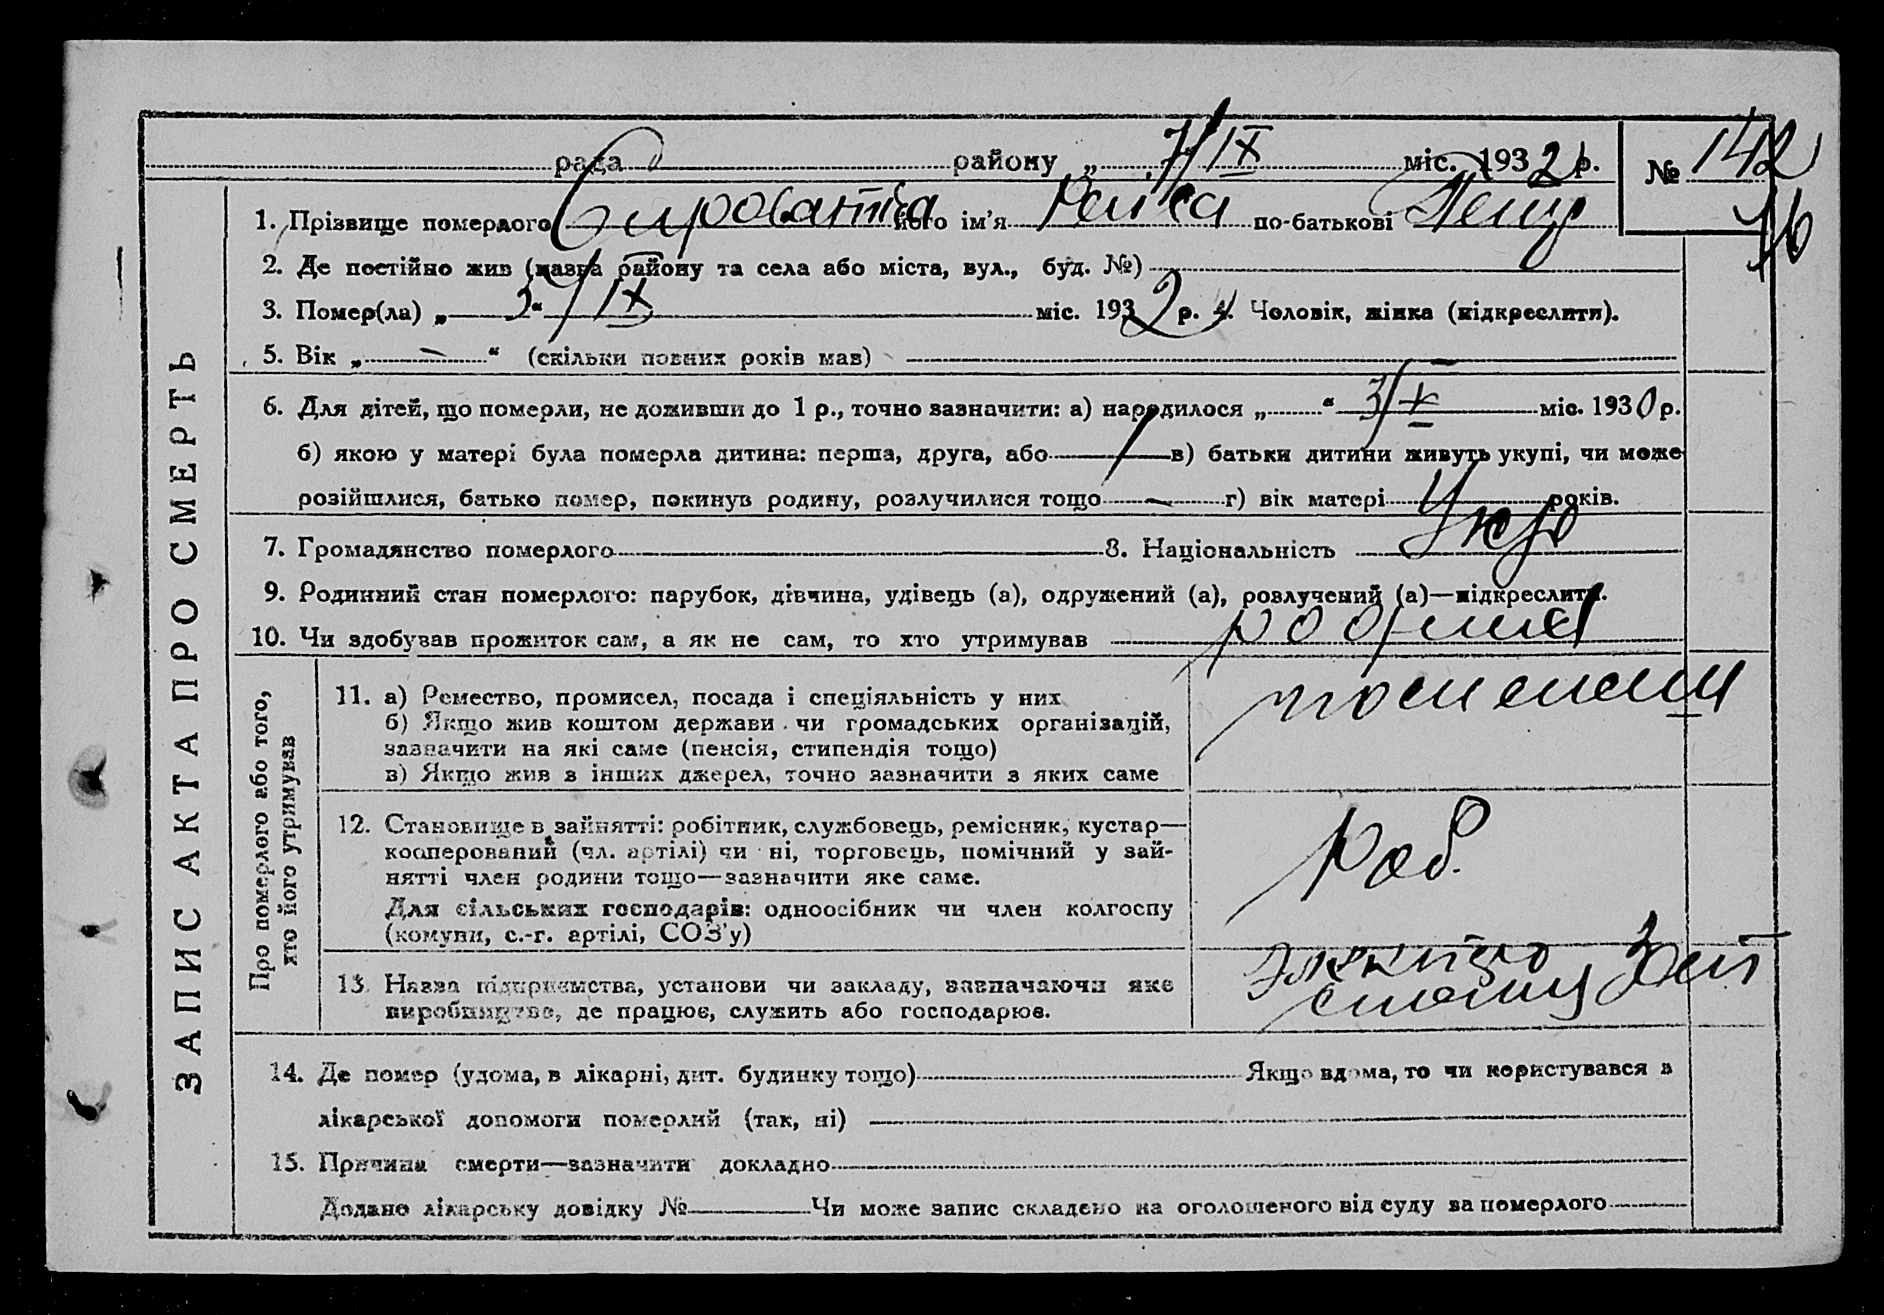 рада района „ 7/IX міс. 1932 р. № 142
1. Прізвище померлого Сироватка його ім'я по-батькові
2. Де постійно жив (назва району та села або міста, вул., буд. №)
3. Помер(ла) „ 3 “ / IX міс. 1932 р. 4. Чоловік, жінка (підкреслити).
5. Вік „ — “ (скільки повних років мав)
6. Для дітей, що померли, не доживши до 1 р., точно зазначити: а) народилося „ “ 3/X міс. 1930 р.
б) якою у матері була померла дитина: перша, друга, або в) батьки дитини живуть укупі, чи може
розійшлися, батько помер, покинув родину, розлучилися тощо г) вік матері років.
7. Громадянство померлого 8. Національність Укр
9. Родинний стан померлого: парубок, дівчина, удівець (а), одружений (а), розлучений (а)—підкреслити.
10. Чи здобував прожиток сам, а як не сам, то хто утримував
ЗАПИС АКТА ПРО СМЕРТЬ
Про померлого або того,
хто його утримував
11. а) Ремество, промисел, посада і спеціяльність у них
б) Якщо жив коштом держави чи громадських організацій,
зазначити на які саме (пенсія, стипендія тощо)
в) Якщо жив з інших джерел, точно зазначити з яких саме
12. Становище в занятті: робітник, службовець, ремісник, кустар—
кооперований (чл. артілі) чи ні, торговець, помічний у зай-
нятті член родини тощо—зазначити яке саме.
Для сільських господарів: одноосібник чи член колгоспу
(комуни, с.-г. артілі, СОЗ'у)
Роб.
13. Назва підприємства, установи чи закладу, зазначаючи яке
виробництво, де працює, служить або господарює.
14. Де помер (удома, в лікарні, дит. будинку тощо) Якщо вдома, то чи користувався з
лікарської допомоги померлий (так, ні)
15. Причина смерти—зазначити докладно
Додано лікарську довідку № Чи може запис складено на оголошеного від суду за померлого